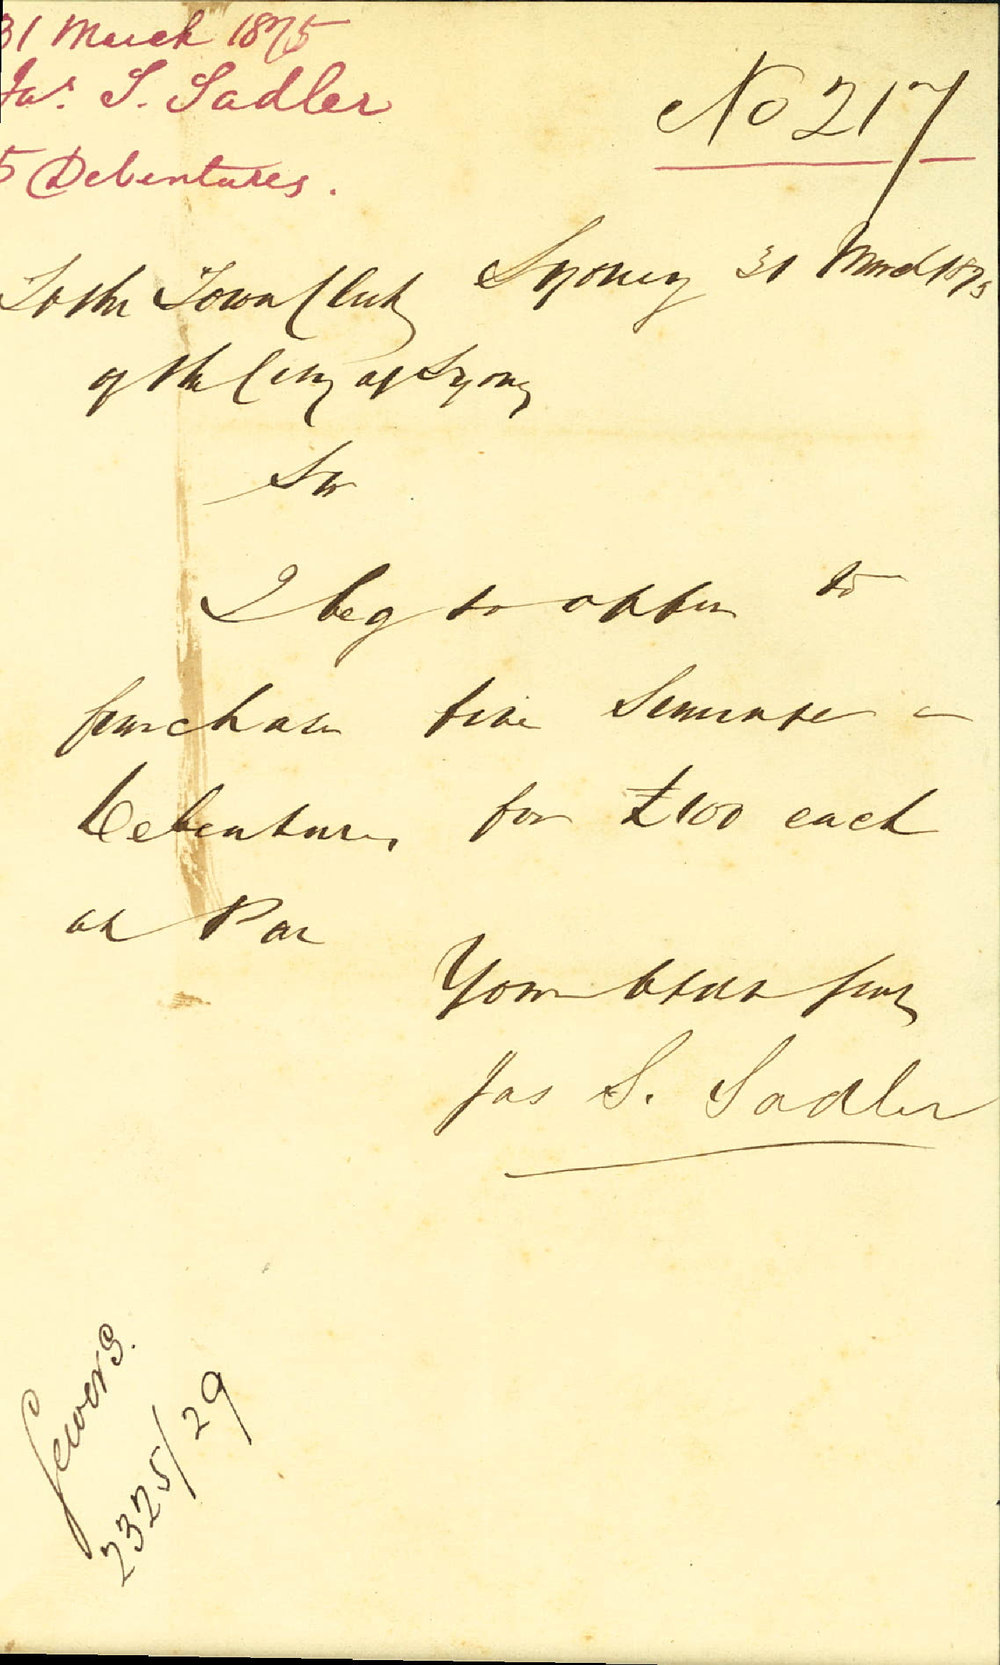 31 March 1875
Jas. S. Sadler
5 Debentures.
No 217
Sydney 31 March 1875
To the Town Clerk
of the City of Sydney
Sir
I beg to offer to
purchase five Sewerage
Debentures for £100 each
at Par
Yours
Jas S. Sadler
Sewers.
2325/29